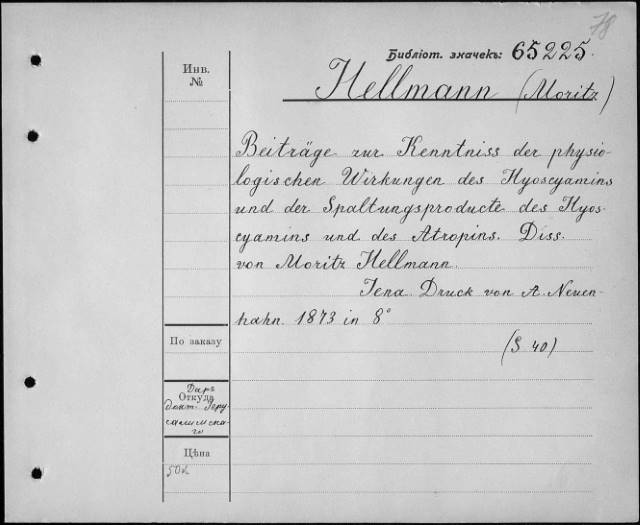 78
Библіот. значекъ: 65225.
Инв. №
Hellmann (Moritz)
Beiträge zur Kenntniss der physio-
logischen Wirkungen des Hyoscyamins
und der Spaltungsproducte des Hyos-
cyamins und des Atropins. Diss.
von Moritz Hellmann.
Jena. Druck von A. Neuen-
hahn. 1873 in 8°
(S 40)
По заказу
Откуда
Даръ
докт. Іеру-
салимска-
го
Цѣна
50к